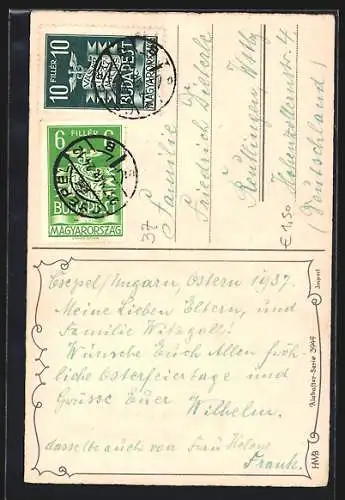 10 FILLÉR 10
BUDAPEST
MAGYARORSZÁG
6 FILLÉR 6
BUDAPEST
MAGYARORSZÁG
37
Familie
Friedrich Dieterle
Reutlingen, Wttbg
Hohenzollernstr. 4
(Deutschland)
€ 1,50
Csepel/Ungarn, Ostern 1937.
Meine Lieben Eltern, und
Familie Witzgall!
Wünsche Euch Allen fröh-
liche Osterfeiertage und
Grüsse Euer Wilhelm.
dasselbe auch von Frau Helene
Frank.
Import
HWB Alabaster-Serie 3949